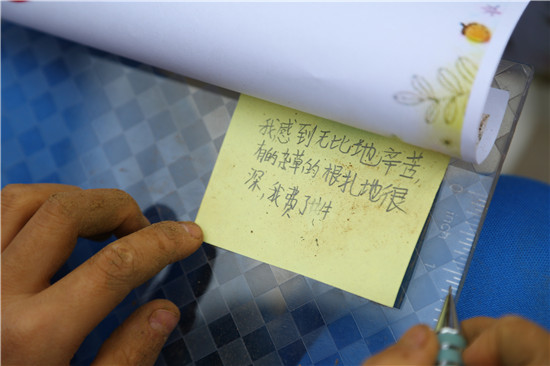 我感到无比地辛苦，
有的杂草的根扎地很
深，我费了牛